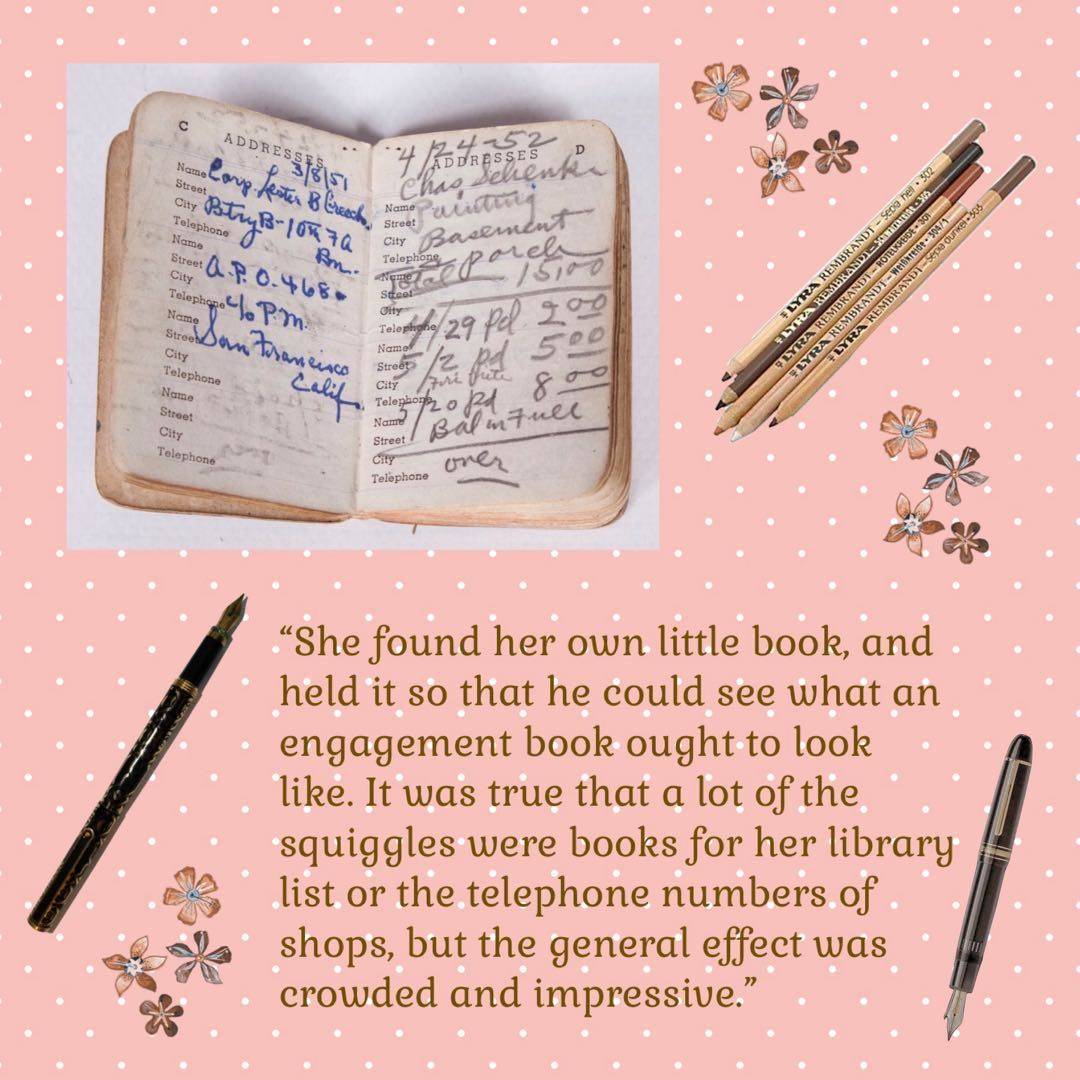 C ADDRESSES
3/8/51
Name Corp. Lester B Creech
Street
City Btry B - 10th FA
Telephone Bn.
Name
Street A.P.O. 468
City
Telephone c/o P.M.
Name
Street San Francisco
City Calif.
Telephone
Name
Street
City
Telephone
4/24-52
ADDRESSES D
Chas Schenk
Name Painting
Street
City Basement
Telephone & porch
Name Total 15.00
Street
City
Telephone 4/29 pd 2.00
Name
Street 5/2 pd 5.00
City
Telephone 8.00
Name 5/20 pd
Street Bal in Full
City
Telephone over
LYRA REMBRANDT - Sepia hell • 302
LYRA REMBRANDT
LYRA REMBRANDT - RÖTELKREIDE • 301
LYRA REMBRANDT - Weißkreide • 304/1
LYRA REMBRANDT Sepia dunkel • 303
“She found her own little book, and
held it so that he could see what an
engagement book ought to look
like. It was true that a lot of the
squiggles were books for her library
list or the telephone numbers of
shops, but the general effect was
crowded and impressive.”